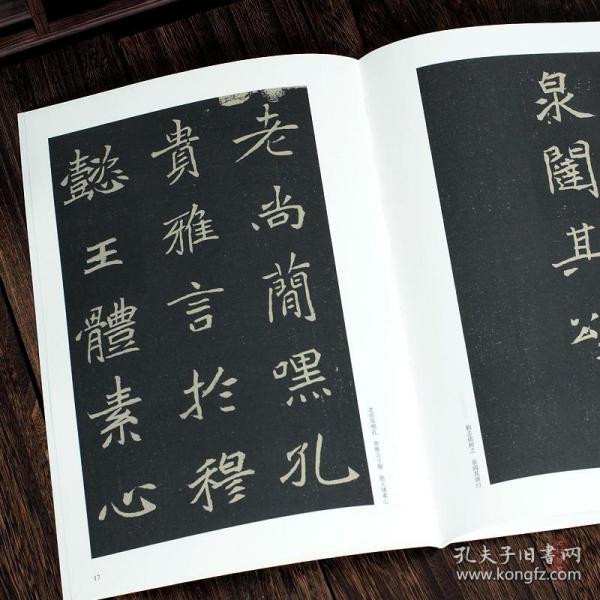 老尚簡嘿孔
貴雅言於穆
懿王體素心
老尚簡嘿孔 貴雅言於穆 懿王體素心
17
泉其
孔夫子旧書网
www.kongfz.com